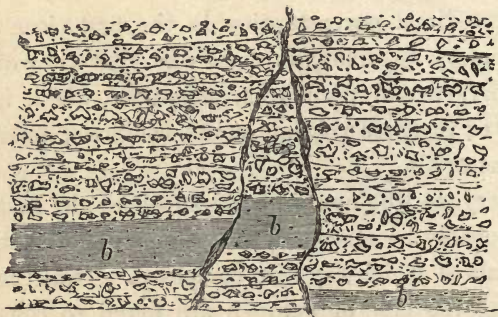 b
b
b